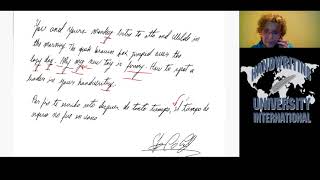 You and your monkey listen to
in the morning. The quick brown fox jumped over the
lazy dog. Why my new toy is funny. How to spot a
leader in your handwriting.
Por fin te mando esto después de tanto tiempo, el tiempo de
espera no fue en vano
HANDWRITING
UNIVERSITY
INTERNATIONAL